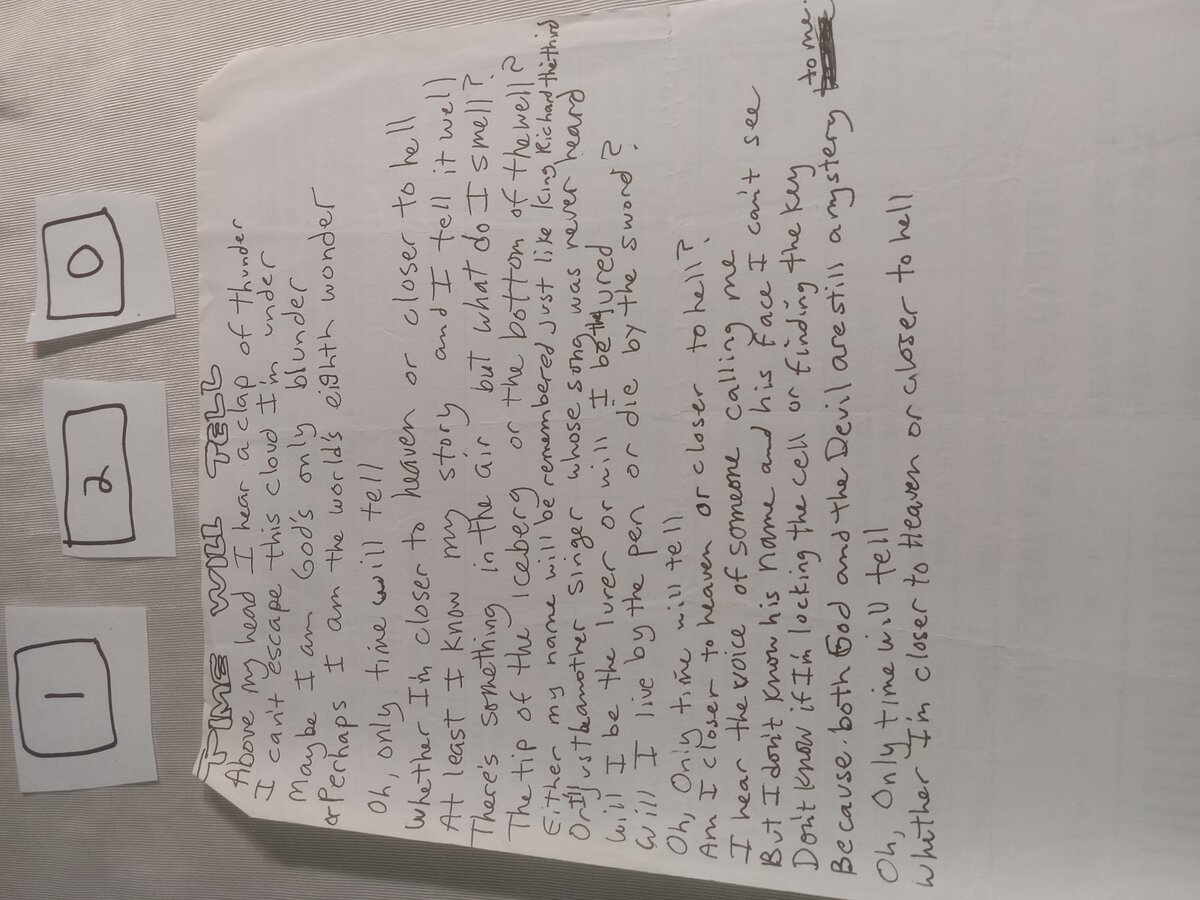 1
2
0
TIME WILL TELL
Above my head I hear a clap of thunder
I can't escape this cloud I'm under
Maybe I am God's only blunder
or Perhaps I am the world's eighth wonder
Oh, only time will tell
Whether I'm closer to heaven or closer to hell
At least I know my story and I tell it well
There's something in the air but what do I smell?
The tip of the Iceberg or the bottom of the well?
Either my name will be remembered just like King Richard the third
Or I'll just be another singer whose song was never heard
Will I be the lurer or will I be the lured
Will I live by the pen or die by the sword?
Oh, Only time will tell
Am I closer to heaven or closer to hell?
I hear the voice of someone calling me
But I don't know his name and his face I can't see
Don't know if I'm locking the cell or finding the key
Because both God and the Devil are still a mystery to me.
Oh, Only time will tell
Whether I'm closer to Heaven or closer to hell